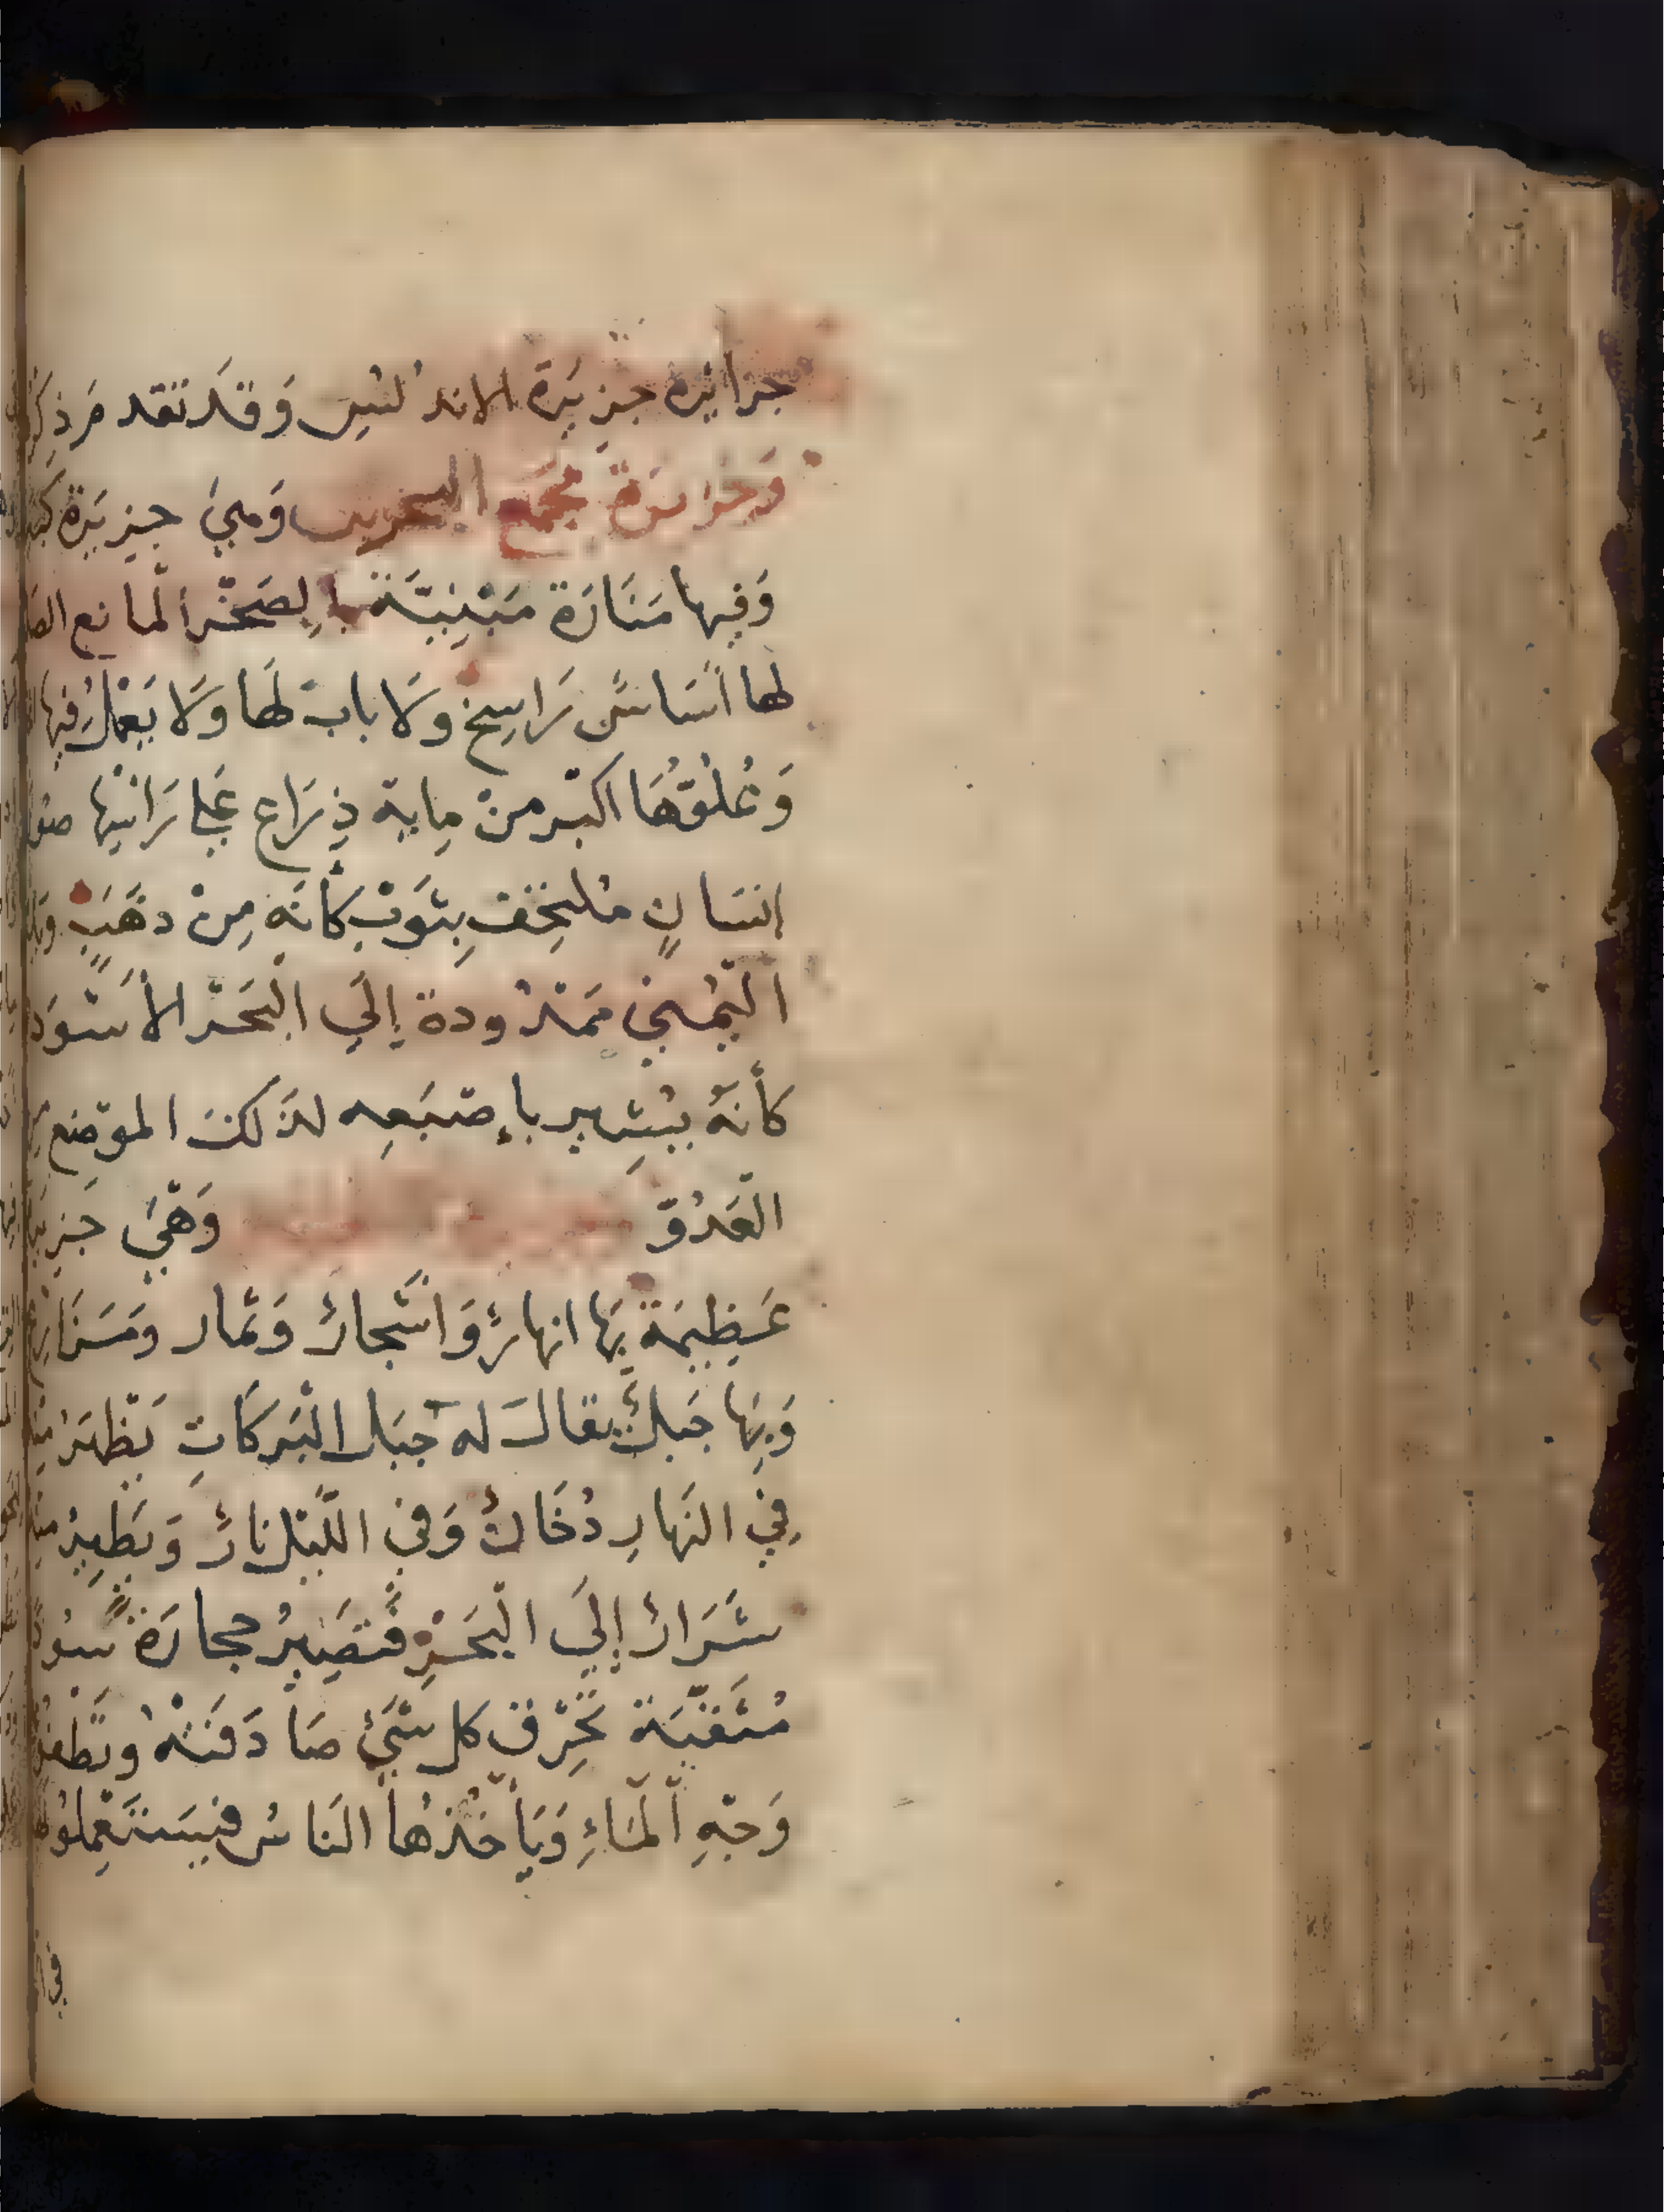 جزائره جزيَرة الاندلُس وَقَد تقدم ذِكر
وَجزيرَة مجمَع البحرين وَهيَ جزيَرة
وَفيها مَنَارَة مَبْنِيَّة بِالصَخْر المانع
لها أسَاسٌ رَاسِخ ولَا باب لَها وَلَا يَعْمل فيها
وَعُلُوُّهَا اكبر منْ ماِية ذِرَاع عَلي رَاسِها
اِنسَانٍ مُلتحِف بِثَوبٍ كأنَه مِنْ دهَبٍ
الْيُمني مَمْدُودة اِلَي الْبَحْر الأسْوَد
كأنهُ يُشِير بإِصْبَعِه لذَلكَ الموْضع
الْعَدُوّ وَهْيَ جَزيرة
عَظِيمَة بِهَا انهارٌ وَاشْجارٌ وَثمار ومَزَارع
وَبِهَا جَبلٌ يقالَ له جبَل الْبَركَاتِ يَظْهَرُ
فِي النَهارِ دُخَانٌ وَفي اللَّيْل نارٌ وَيَطِيرُ
شَرَارٌ إِلَي الْبَحْرِ فَتَصِيرُ حجارَةً سُود
مُثَقّبَة تَحْرِق كل شَيْءٍ صَادَفَتْهُ وتَطْفو
وَجْهِ الْمَاءِ وَيَأخُذهُا النَاسُ فيَسْتَعْمِلُو
في